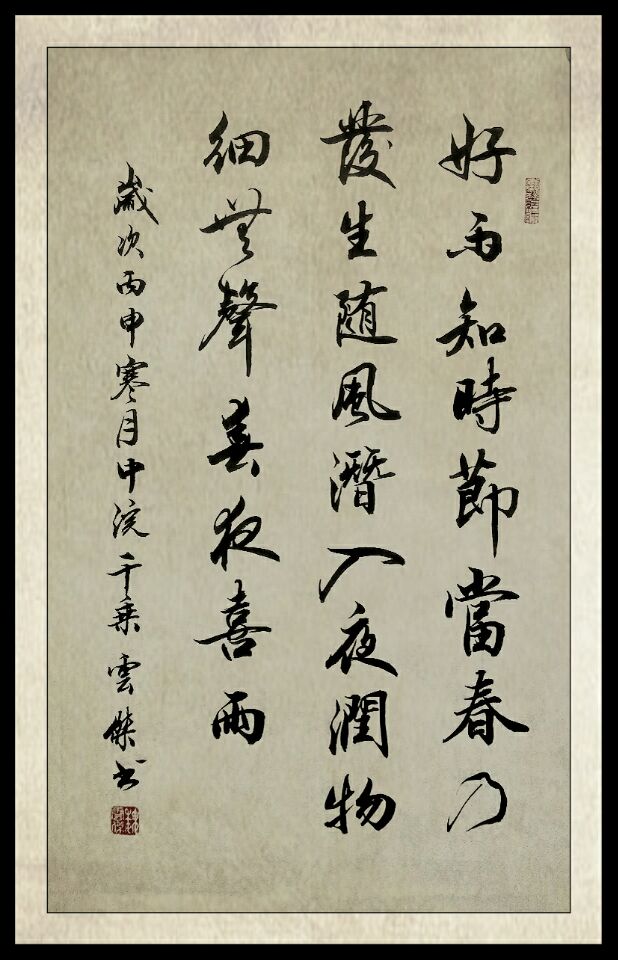 好雨知時節當春乃
發生随風潛入夜潤物
細無聲春夜喜雨
歲次丙申寒月中浣千乘雲傑书